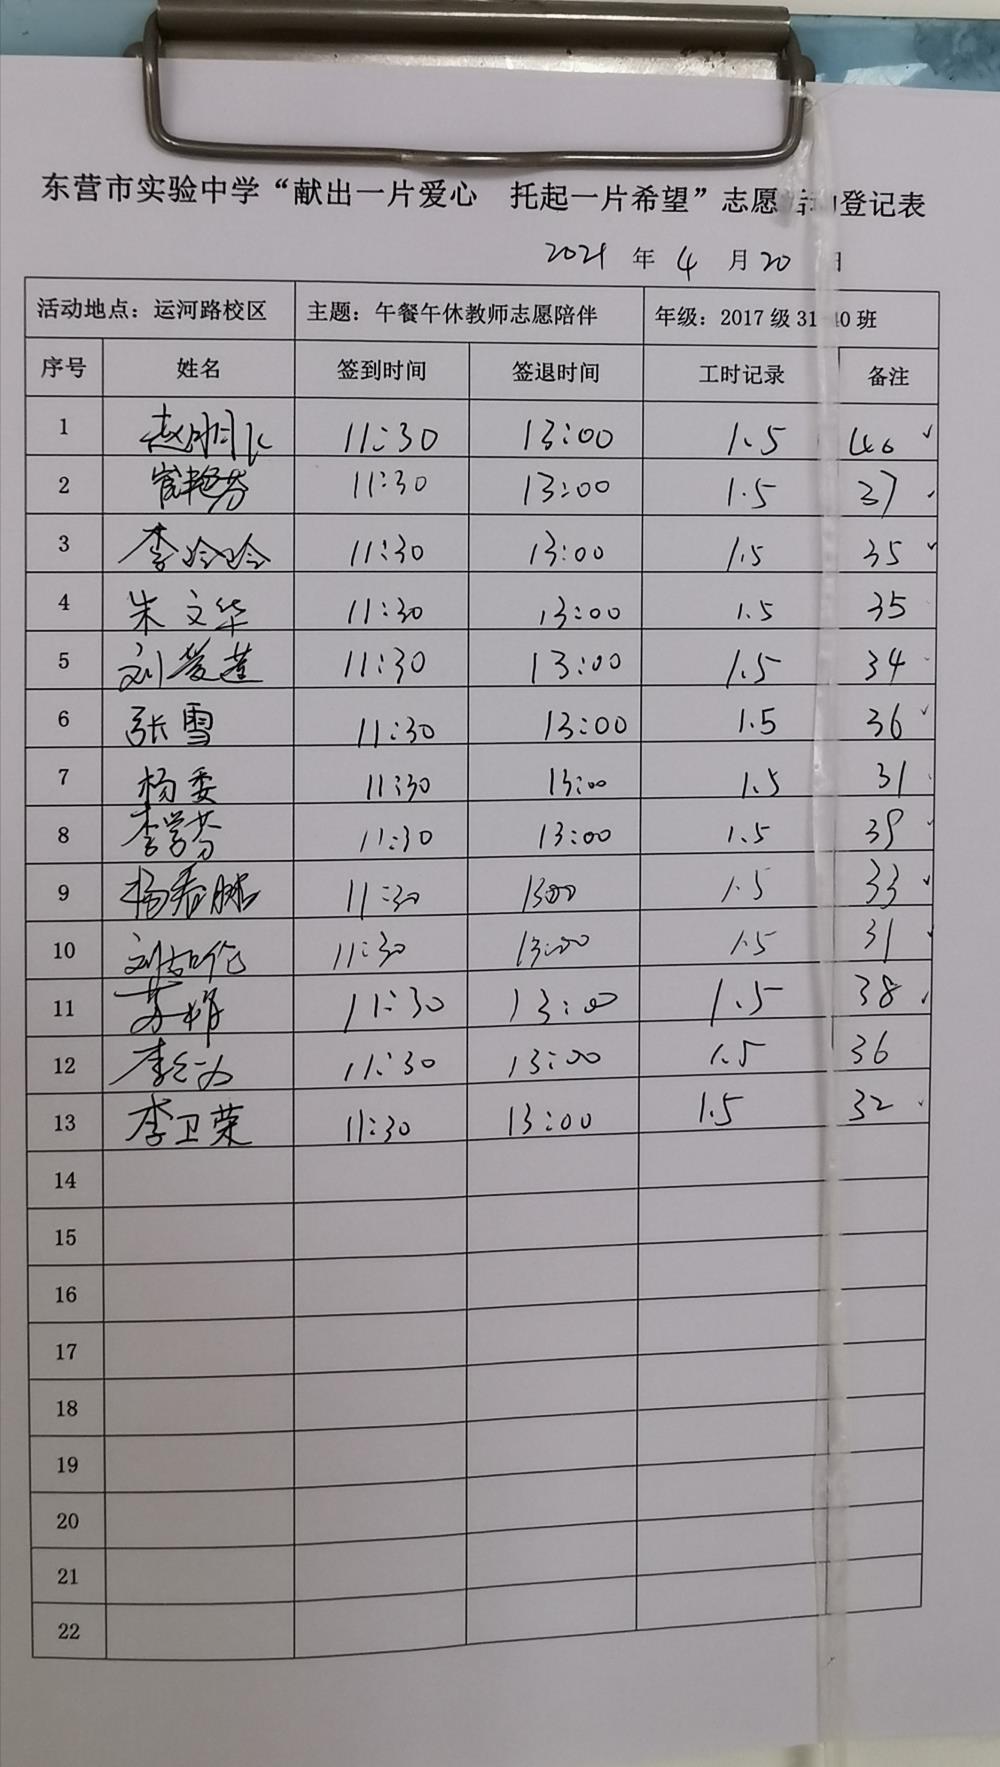 东营市实验中学“献出一片爱心 托起一片希望”志愿活动登记表
2021 年 4 月 20 日
活动地点：运河路校区 主题：午餐午休教师志愿陪伴 年级：2017级31-40班
序号 姓名 签到时间 签退时间 工时记录 备注
1 11:30 13:00 1.5 40 ✓
2 11:30 13:00 1.5 37 ✓
3 李玲玲 11:30 13:00 1.5 35 ✓
4 朱文华 11:30 13:00 1.5 35
5 刘爱莲 11:30 13:00 1.5 34
6 张雪 11:30 13:00 1.5 36 ✓
7 杨委 11:30 13:00 1.5 31
8 李学芬 11:30 13:00 1.5 39 ✓
9 杨春 11:30 1300 1.5 33 ✓
10 刘 11:30 13:00 1.5 31 ✓
11 苏娟 11:30 13:00 1.5 38 ✓
12 李 11:30 13:00 1.5 36
13 李卫荣 11:30 13:00 1.5 32 ✓
14
15
16
17
18
19
20
21
22